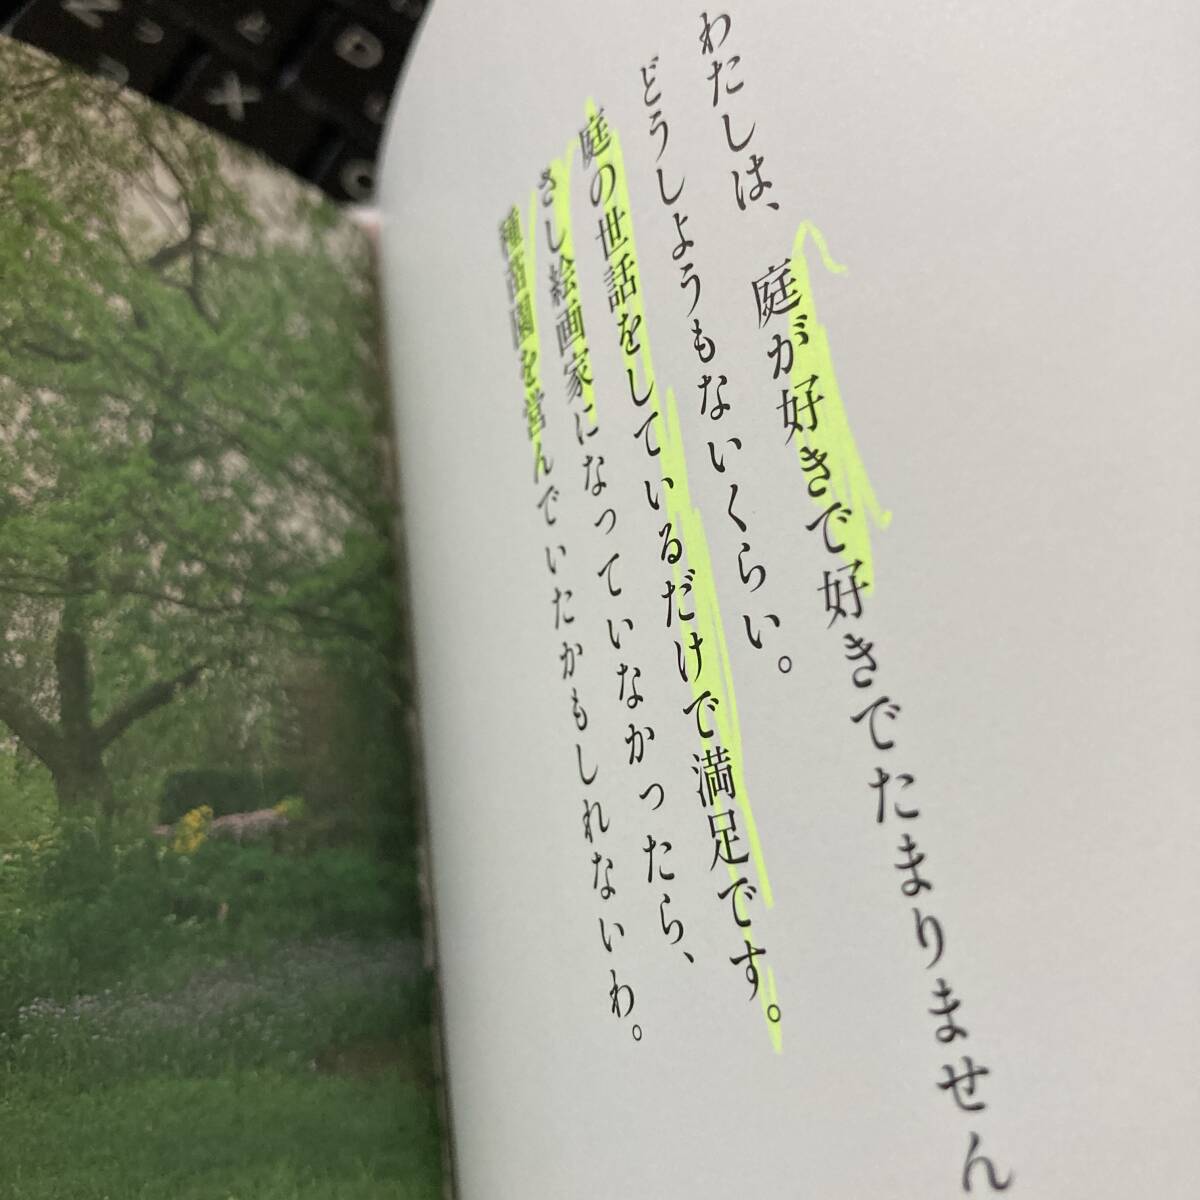 わたしは、庭が好きで好きでたまりません
どうしようもないくらい。
庭の世話をしているだけで満足です。
さし絵画家になっていなかったら、
種苗園を営んでいたかもしれないわ。
N
X